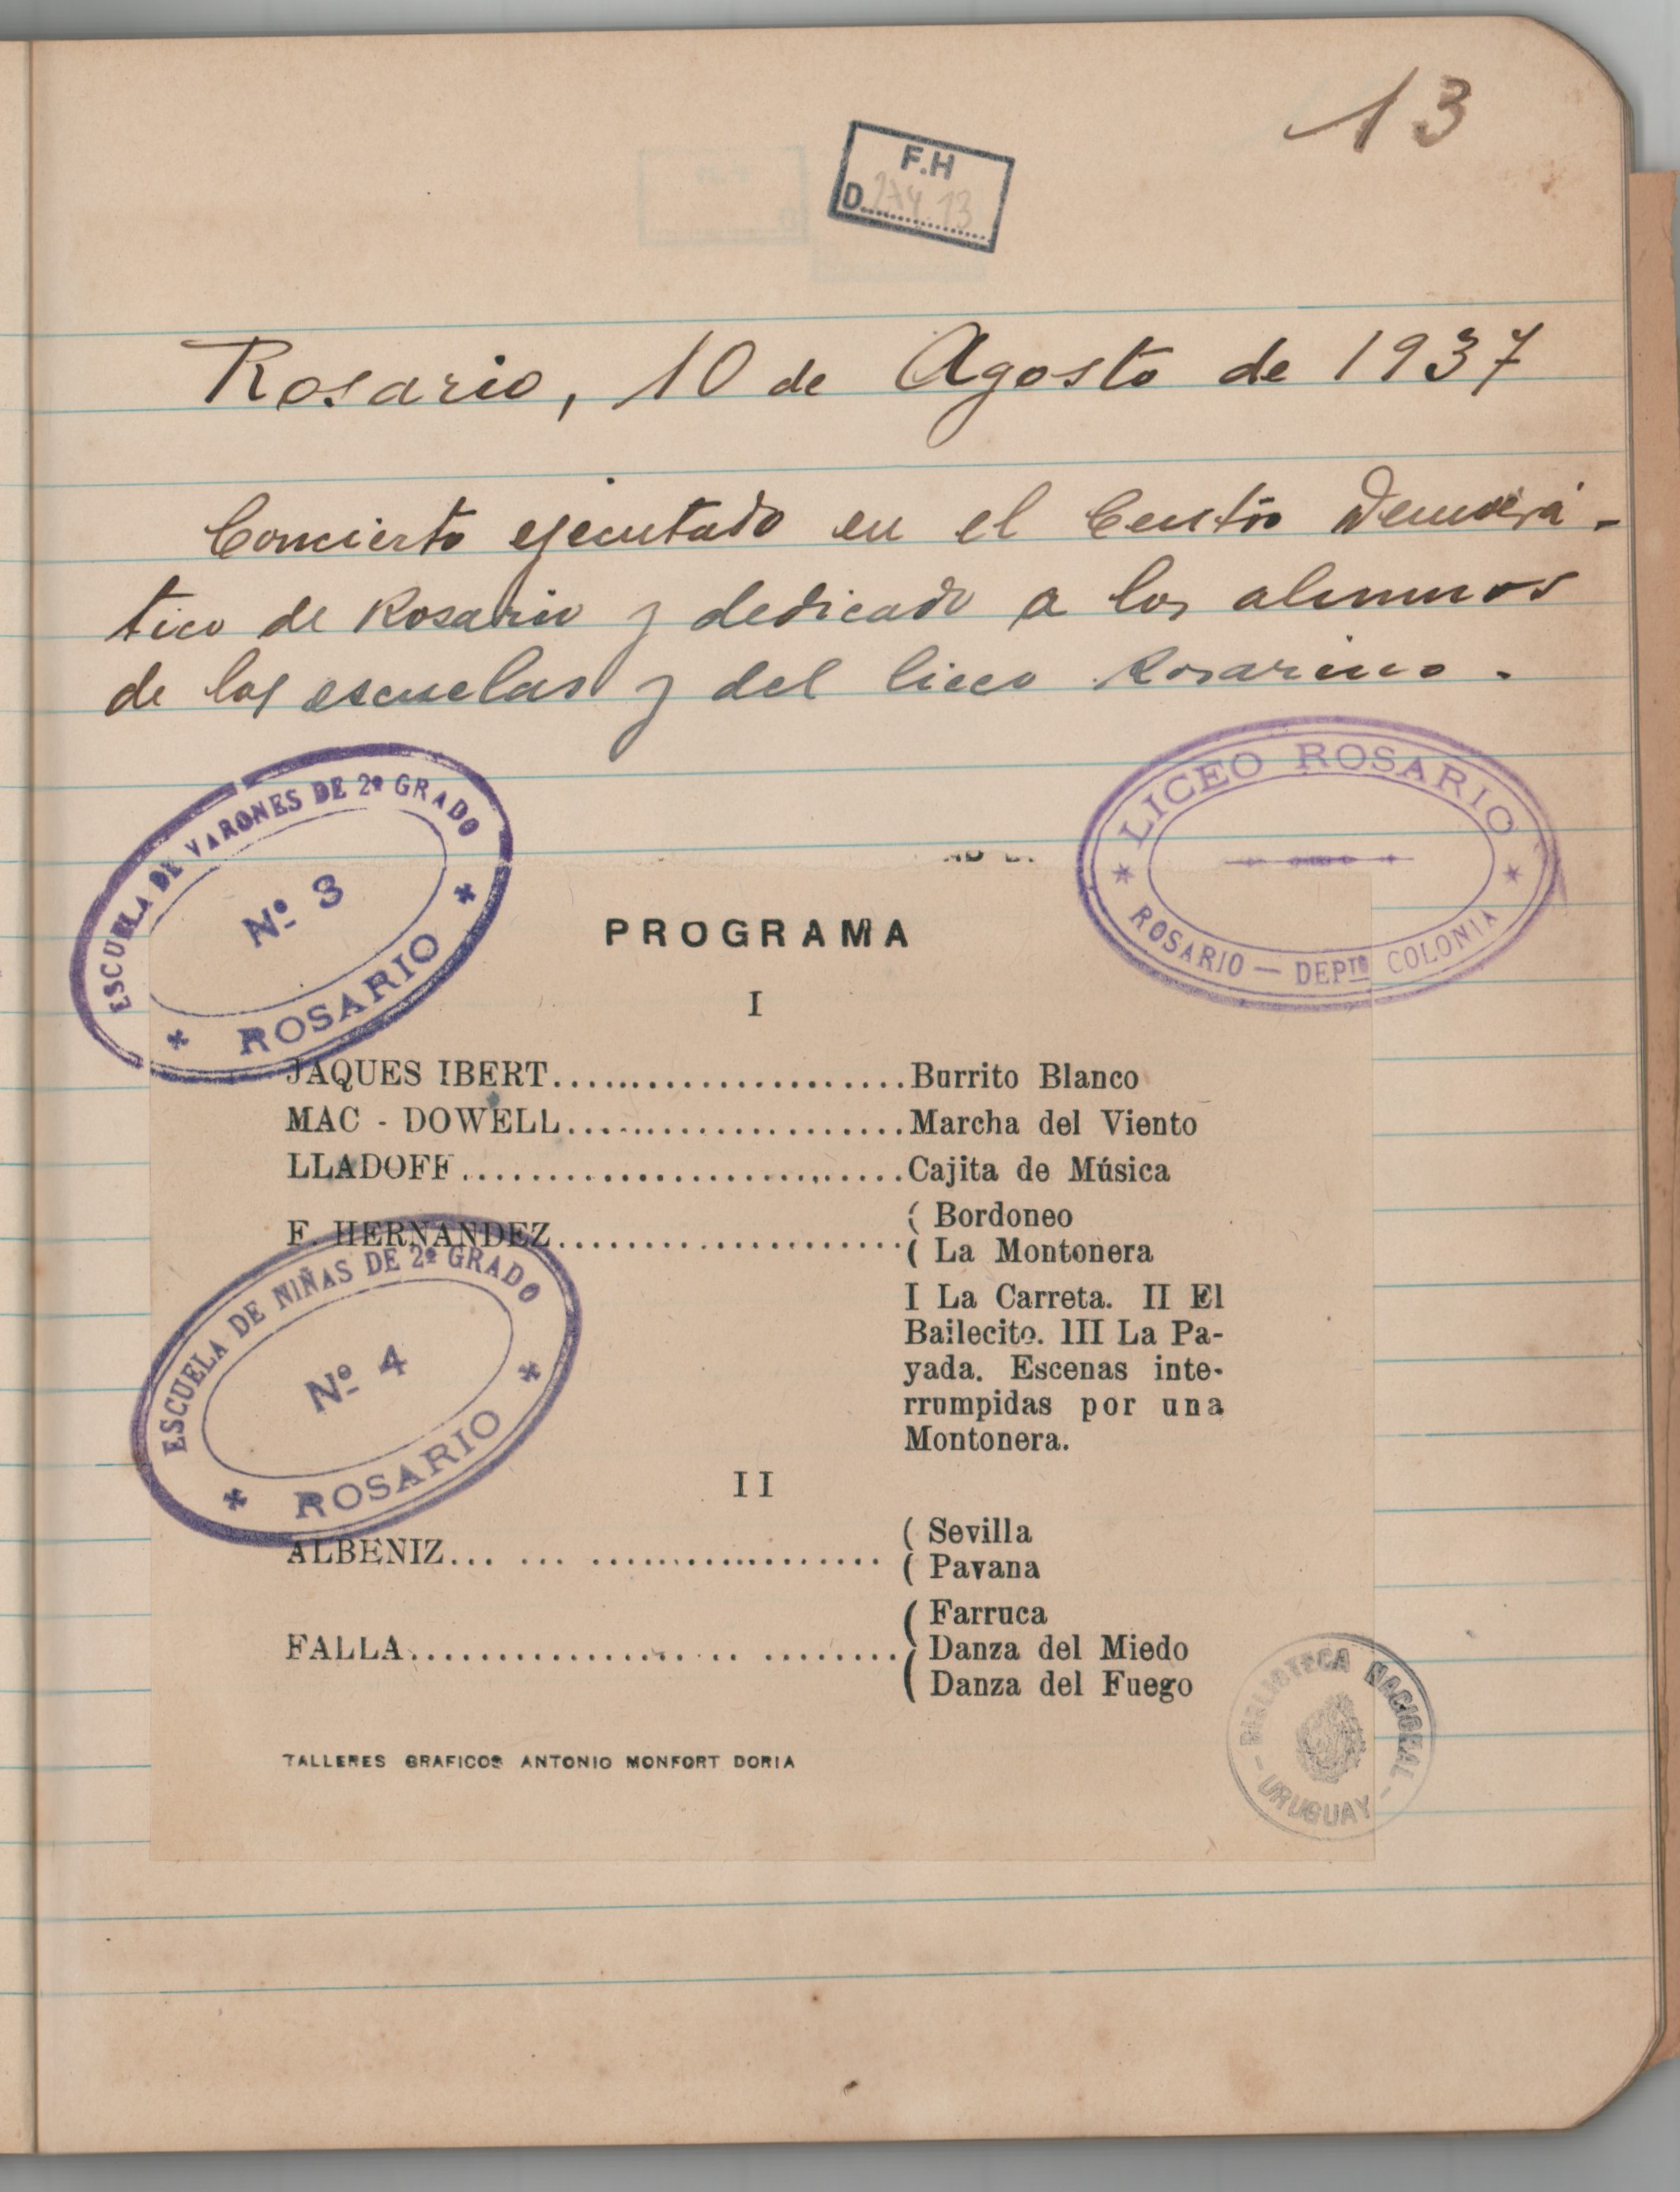 13
F.H
D. 274.13
Rosario, 10 de Agosto de 1937
Concierto ejecutado en el Centro Democrá-
tico de Rosario y dedicado a los alumnos
de las escuelas y del liceo Rosarino.
ESCUELA DE VARONES DE 2º GRADO
Nº 3
ROSARIO
LICEO ROSARIO
ROSARIO — DEPTO COLONIA
PROGRAMA
I
JAQUES IBERT........................Burrito Blanco
MAC - DOWELL.......................Marcha del Viento
LLADOFF..............................Cajita de Música
( Bordoneo
F. HERNANDEZ........................
( La Montonera
I La Carreta. II El
Bailecito. III La Pa-
yada. Escenas inte-
rrumpidas por una
Montonera.
ESCUELA DE NIÑAS DE 2º GRADO
Nº 4
ROSARIO
II
( Sevilla
ALBENIZ... ... ....................
( Pavana
( Farruca
FALLA...................... .. ......... Danza del Miedo
( Danza del Fuego
TALLERES GRAFICOS ANTONIO MONFORT DORIA
BIBLIOTECA NACIONAL
- URUGUAY -